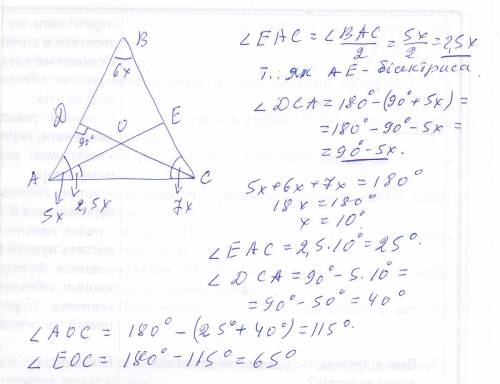 B
6x
D
E
O
90°
A
C
5x
2,5x
7x
∠EAC = ∠BAC/2 = 5x/2 = 2,5x
Т. як AE - бісектриса.
∠DCA = 180° - (90° + 5x) =
= 180° - 90° - 5x =
= 90° - 5x.
5x + 6x + 7x = 180°
18x = 180°
x = 10°.
∠EAC = 2,5·10° = 25°.
∠DCA = 90° - 5·10° =
= 90° - 50° = 40°
∠AOC = 180° - (25° + 40°) = 115°.
∠EOC = 180° - 115° = 65°